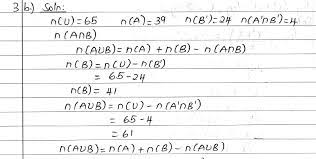 3 b) Soln:
n(U)=65 n(A)=39 n(B')=24 n(A'∩B')=4
n(A∩B)
n(A∪B)=n(A)+n(B)-n(A∩B)
n(B)=n(U)-n(B')
= 65-24
n(B)= 41
n(A∪B)=n(U)-n(A'∩B')
= 65-4
= 61
n(A∪B)=n(A)+n(B)-n(A∪B)